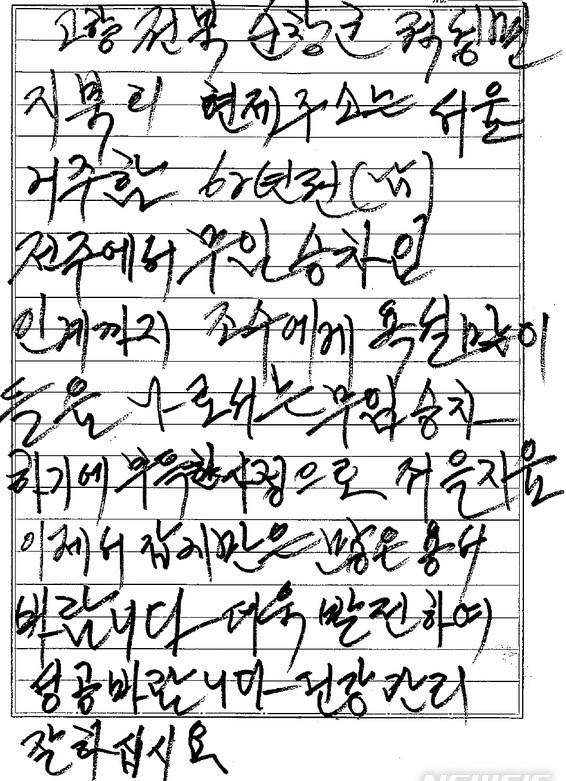 고향 전북 순창군 적성면
지북리 현제주소는 서울
거주함 62년전(남)
전주에서 무임승차
인계까지 조수에게 욕설많이
들음 나로서는 무임승차
하기에 부득한사정으로
이제서 잡지만은 많은 용서
바람니다 더욱 발전하여
성공바람니다 건강관리
잘하십시요
NEWSIS